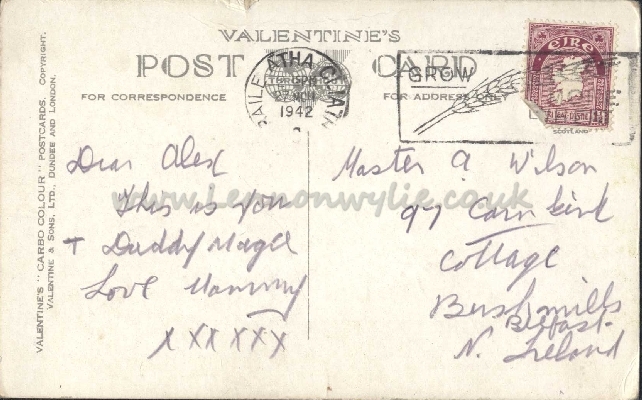 VALENTINE'S
POST CARD
FOR CORRESPONDENCE
FOR ADDRESS ONLY
BAILE ATHA CLIATH
5PM
27 NOV
1942
GROW
EIRE
SCOTLAND
VALENTINE'S "CARBO COLOUR" POSTCARDS. COPYRIGHT.
VALENTINE & SONS, LTD., DUNDEE AND LONDON.
www.lennonwylie.co.uk
Dear Alex
This is you
+ Daddy Magee
Love Mammy
x x x x x x
Master A Wilson
97 Carnkirk
Cottage
Bushmills
Belfast
N. Ireland